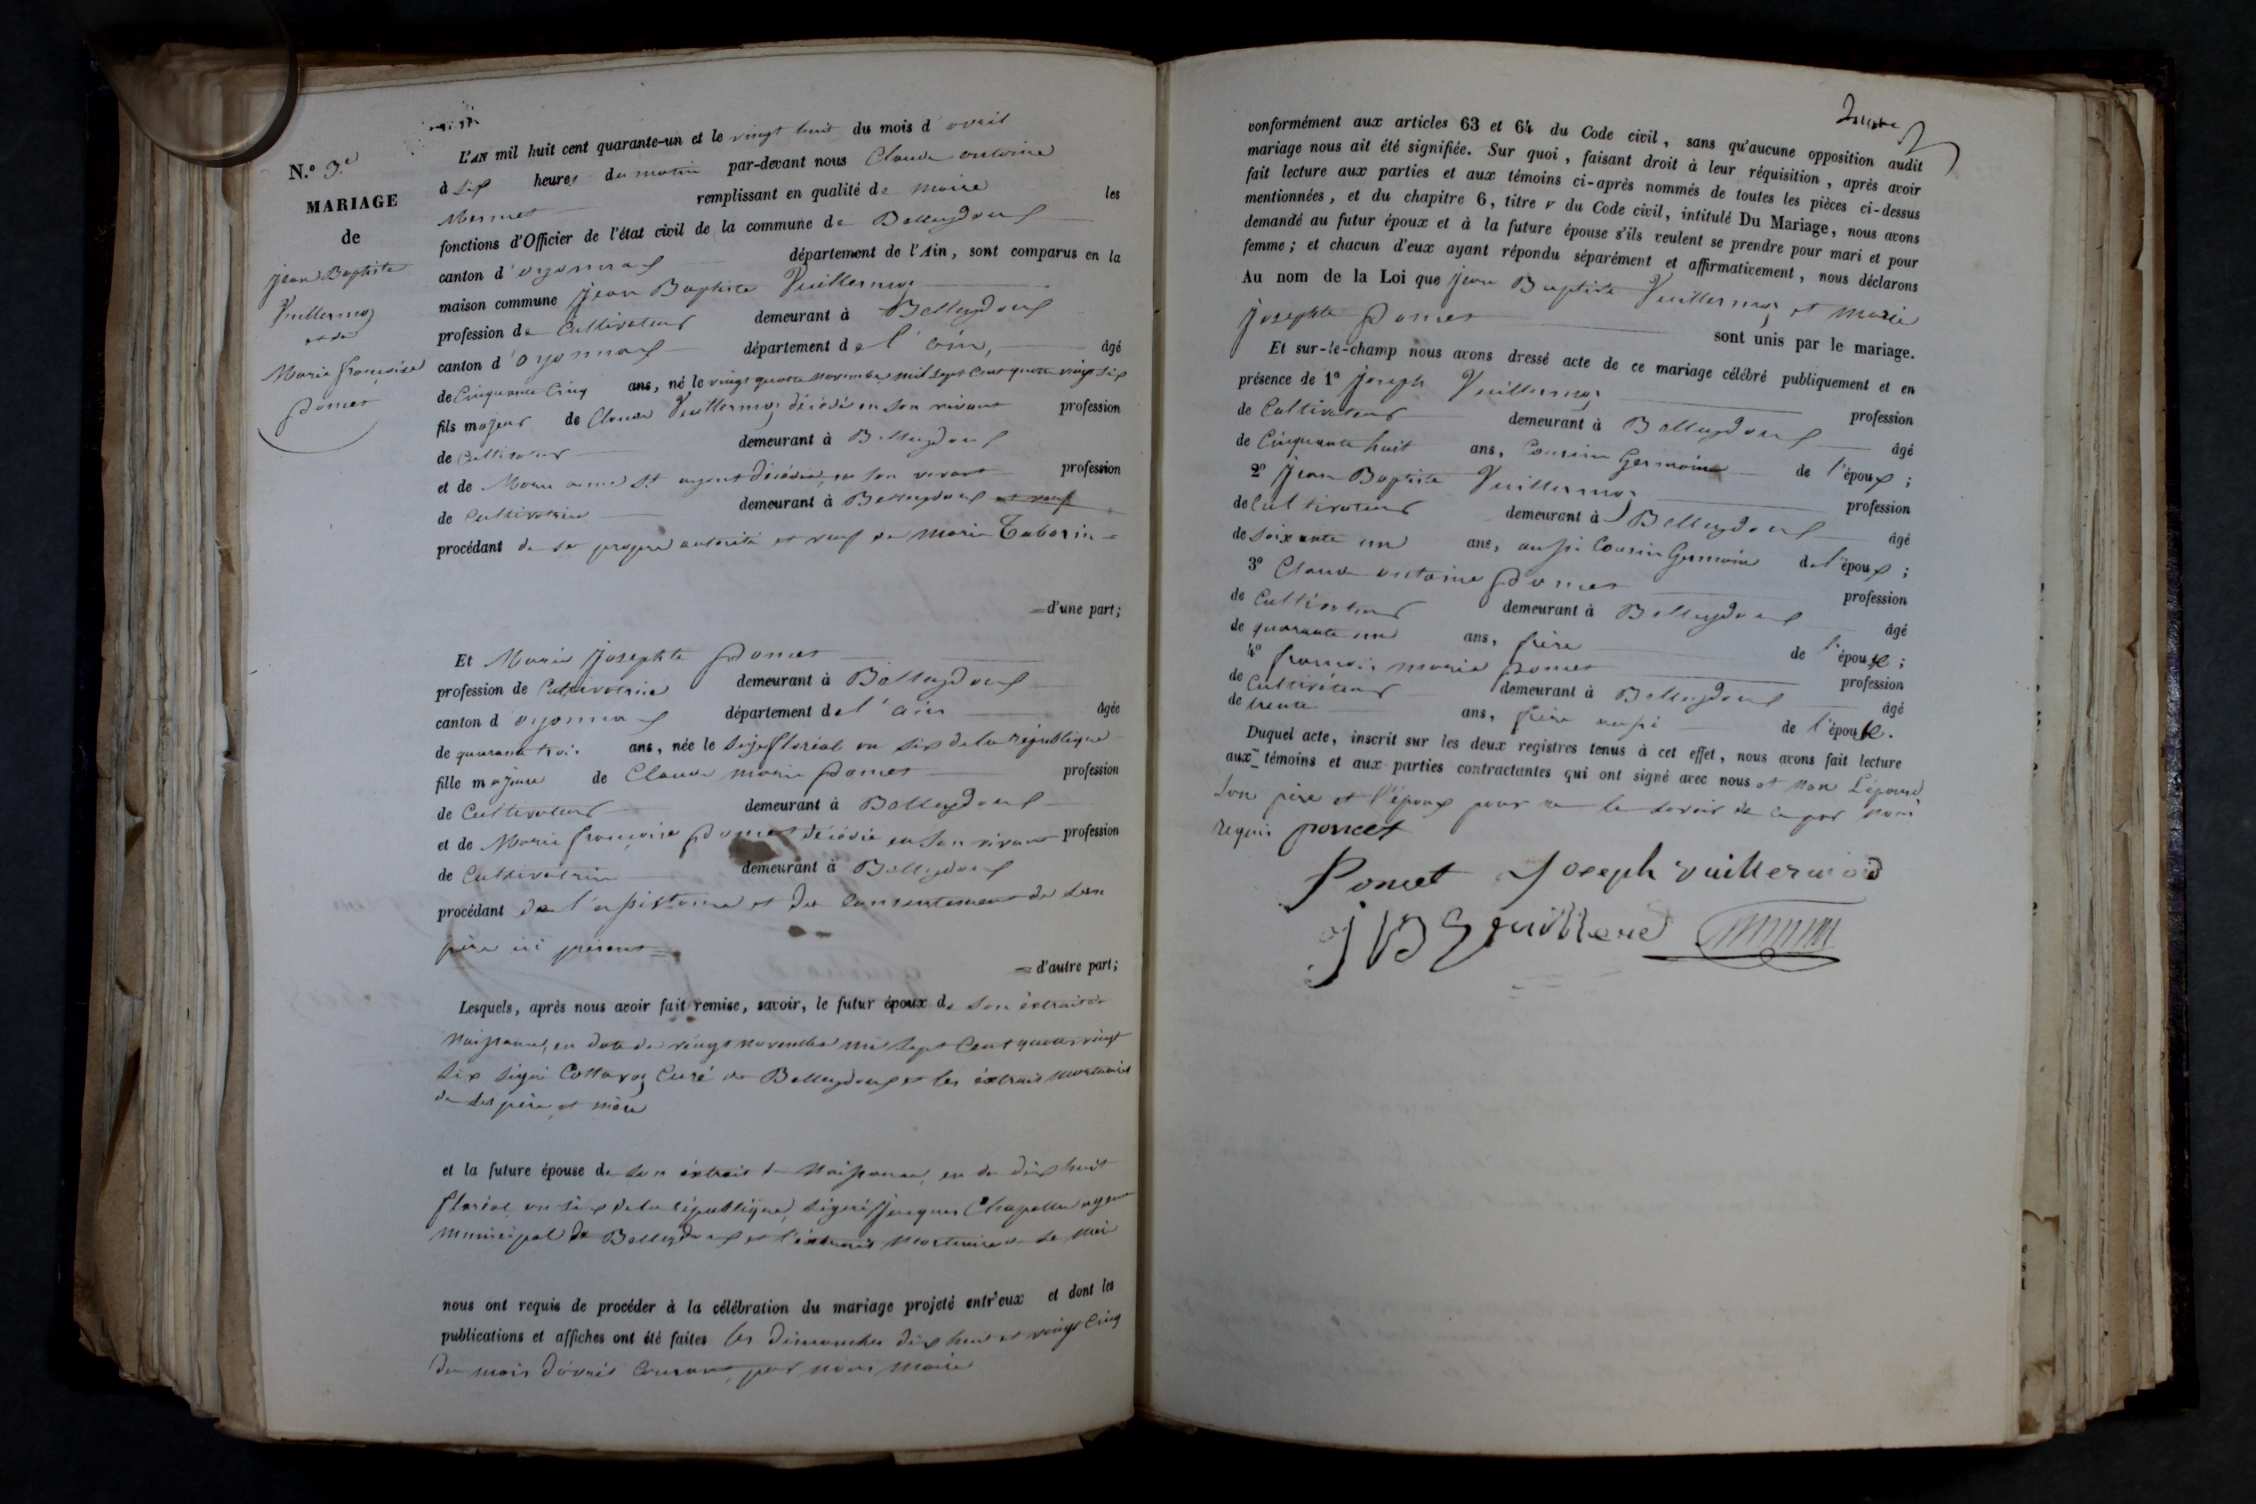 N.º 3.e
MARIAGE
de
Jean Baptiste
Vuillermoz
et de
Marie françoise
Poncet
L'AN mil huit cent quarante-un et le vingt huit du mois d'avril
à six heures du matin par-devant nous Claude antoine
Mermet remplissant en qualité de maire les
fonctions d'Officier de l'état civil de la commune de Belleydoux
canton d'oyonnax département de l'Ain, sont comparus en la
maison commune Jean Baptiste Vuillermoz
profession de Cultivateur demeurant à Belleydoux
canton d'oyonnax département de l'ain, âgé
de Cinquante Cinq ans, né le vingt quatre novembre mil sept Cent quatre vingt six
fils majeur de Claude Vuillermoz décédé en son vivant profession
de Cultivateur demeurant à Belleydoux
et de Marie anne décédée en son vivant profession
de Cultivatrice demeurant à Belleydoux et veuf
procédant de sa propre autorité et veuf de Marie Taborin =
= d'une part;
Et Marie Josephte Poncet
profession de Cultivatrice demeurant à Belleydoux
canton d'oyonnax département de l'ain âgée
de quarante trois ans, née le seize floréal an six de la république
fille majeure de Claude marie Poncet profession
de Cultivateur demeurant à Belleydoux
et de Marie françoise Poncet décédée en son vivant profession
de Cultivatrice demeurant à Belleydoux
procédant de l'assistance et du Consentement de son
père ici présent =
= d'autre part;
Lesquels, après nous avoir fait remise, savoir, le futur époux de son extrait de
Naissance, en date du vingt novembre mil sept Cent quatre vingt
six signé Curé de Belleydoux et les extraits mortuaires
de ses père et mère
et la future épouse de son extrait de Naissance, en du dix huit
floréal an six de la république, signé Jacques Chapelle agent
municipal de Belleydoux et l'extrait Mortuaire de sa mère
nous ont requis de procéder à la célébration du mariage projeté entr'eux et dont les
publications et affiches ont été faites les dimanches dix huit et vingt Cinq
du mois d'avril Courant, par nous maire
conformément aux articles 63 et 64 du Code civil, sans qu'aucune opposition audit
mariage nous ait été signifiée. Sur quoi, faisant droit à leur réquisition, après avoir
fait lecture aux parties et aux témoins ci-après nommés de toutes les pièces ci-dessus
mentionnées, et du chapitre 6, titre V du Code civil, intitulé Du Mariage, nous avons
demandé au futur époux et à la future épouse s'ils veulent se prendre pour mari et pour
femme; et chacun d'eux ayant répondu séparément et affirmativement, nous déclarons
Au nom de la Loi que Jean Baptiste Vuillermoz et marie
Josephte Poncet sont unis par le mariage.
Et sur-le-champ nous avons dressé acte de ce mariage célébré publiquement et en
présence de 1º Joseph Vuillermoz profession
de Cultivateur demeurant à Belleydoux âgé
de Cinquante huit ans, Cousin Germain de l'époux;
2º Jean Baptiste Vuillermoz profession
de Cultivateur demeurant à Belleydoux âgé
de soixante un ans, aussi Cousin Germain de l'époux;
3º Claude antoine Poncet profession
de Cultivateur demeurant à Belleydoux âgé
de quarante un ans, frère de l'épouse;
4º françois marie Poncet profession
de Cultivateur demeurant à Belleydoux âgé
de trente ans, frère aussi de l'épouse.
Duquel acte, inscrit sur les deux registres tenus à cet effet, nous avons fait lecture
aux témoins et aux parties contractantes qui ont signé avec nous et non L'épouse,
son père et l'époux pour ne le savoir de ce par nous
requis poncet
Poncet Joseph vuillermoz
J B Vuillerme